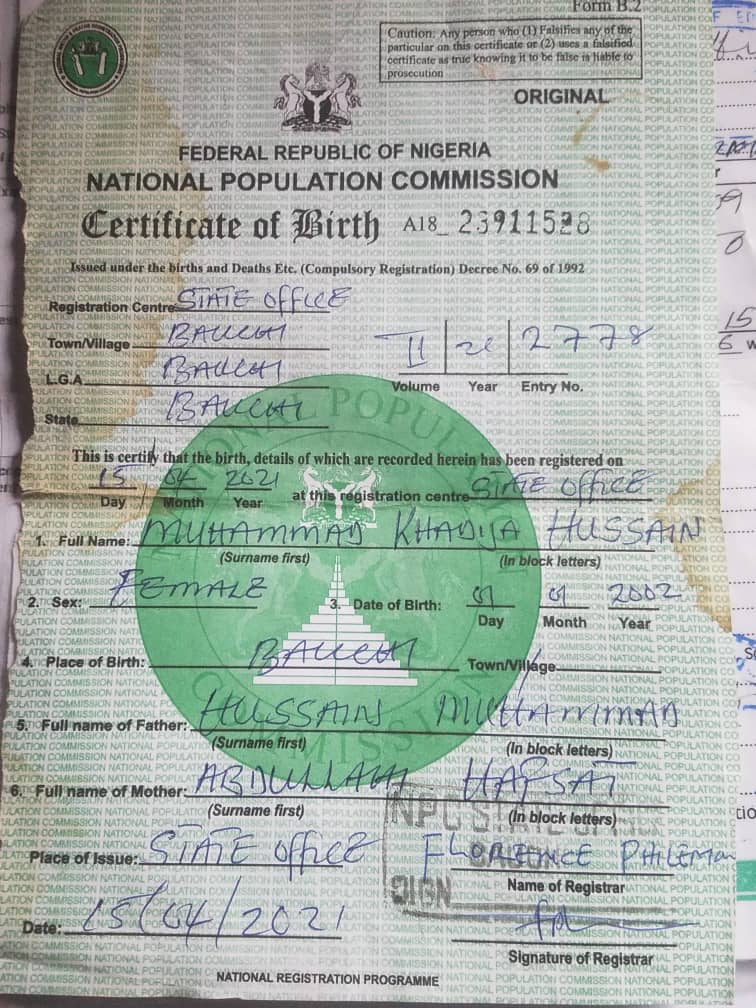 Form B.2
Caution: Any person who (1) Falsifies any of the
particular on this certificate or (2) uses a falsified
certificate as true knowing it to be false is liable to
prosecution
ORIGINAL
FEDERAL REPUBLIC OF NIGERIA
NATIONAL POPULATION COMMISSION
Certificate of Birth A18_ 23911528
Issued under the births and Deaths Etc. (Compulsory Registration) Decree No. 69 of 1992
Registration Centre STATE OFFICE
Town/Village BAUCHI
L.G.A BAUCHI
State BAUCHI
II 21 2778
Volume Year Entry No.
This is certify that the birth, details of which are recorded herein has been registered on
15 04 2021 at this registration centre STATE OFFICE
Day Month Year
1. Full Name: MUHAMMAD KHADIJA HUSSAIN
(Surname first) (In block letters)
2. Sex: FEMALE 3. Date of Birth: 01 01 2002
Day Month Year
4. Place of Birth: BAUCHI Town/Village
5. Full name of Father: HUSSAIN MUHAMMAD
(Surname first) (In block letters)
6. Full name of Mother: ABDULLAHI HAFSAT
(Surname first) (In block letters)
Place of Issue: STATE OFFICE FLORENCE PHILEMON
Name of Registrar
NPC STATE
SIGN
Date: 15/04/2021
Signature of Registrar
NATIONAL REGISTRATION PROGRAMME